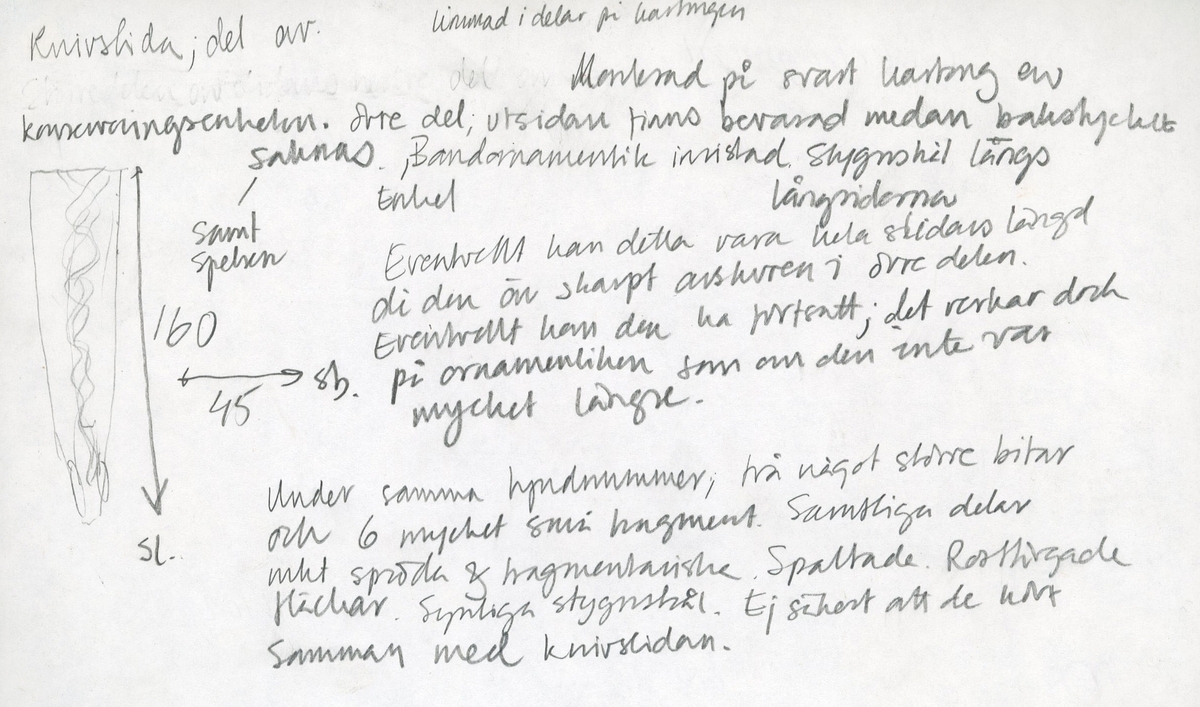 limmad i delar på kartongen
Knivslida; del av.
Monterad på svart kartong av
konserveringsenheten. övre del; utsidan finns bevarad medan bakstycket
saknas. Bandornamentik inristad. Stygnshål längs
Enkel
långsidorna
samt
spetsen
Eventuellt kan detta vara hela slidans längd
då den är skarpt avskuren i övre delen.
160
Eventuellt kan den ha fortsatt; det verkar dock
45
sb.
på ornamentiken som om den inte var
mycket längre.
sl.
Under samma fyndnummer; två något större bitar
och 6 mycket små fragment. Samtliga delar
mkt spröda & fragmentariska. Spaltade. Rostfärgade
fläckar. Synliga stygnshål. Ej säkert att de hört
samman med knivslidan.